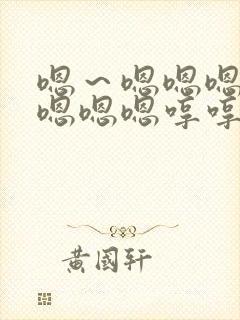 嗯～嗯嗯嗯
嗯嗯嗯哼哼
黄國轩